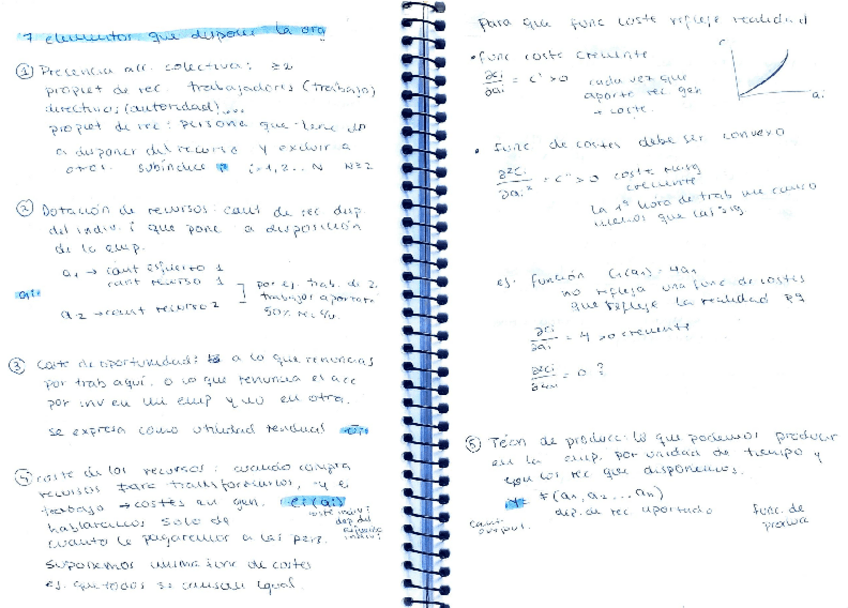 7 elementos que dispone la org
① Presencia acc. colectiva: ≥2
propiet de rec. trabajadores (trabajo)
directivos (autoridad)...
propiet de rec: persona que tiene
a disponer del recurso y excluir a
otros. subíndice i=1,2... N N≥2
② Dotación de recursos: cant de rec disp.
del indiv. i que pone a disposición
de la emp.
a₁ → cant esfuerzo 1
cant recurso 1
ai:
por ej. trab. de 2.
trabajador aporta
50% rec
a₂ → cant recurso 2
③ Coste de oportunidad: a lo que renuncias
por trab aquí. o lo que renuncia el acc
por inv en mi emp y no en otra.
se expresa como utilidad
④ coste de los recursos: cuando compra
recursos para transformarlos, y el
trabajo → costes en gen. ci(ai)
coste indiv i
dep. del
esfuerzo
indiv i
hablaremos solo de
cuanto le pagaremos a las pers.
Suponemos misma func de costes
ej. que todos se cansan igual.
para que func coste refleje realidad
• func coste creciente
∂ci/∂ai = c' > 0 cada vez que
aporte rec gen
→ coste.
c
ai
• func de costes debe ser convexa
∂²ci/∂ai² = c'' > 0 coste
creciente
la 1ª hora de trab me canso
menos que las sig
ej. función c₁(a₁) = 4a₁
no refleja una func de costes
que refleje la realidad pq
∂ci/∂ai = 4 >0 creciente
∂²ci = 0 ?
⑤ Técn de producc: lo que podemos producir
en la emp. por unidad de tiempo y
con los rec que disponemos.
Y = F(a₁, a₂ ... an)
dep. de rec aportado
func. de
producc
cant.
output.